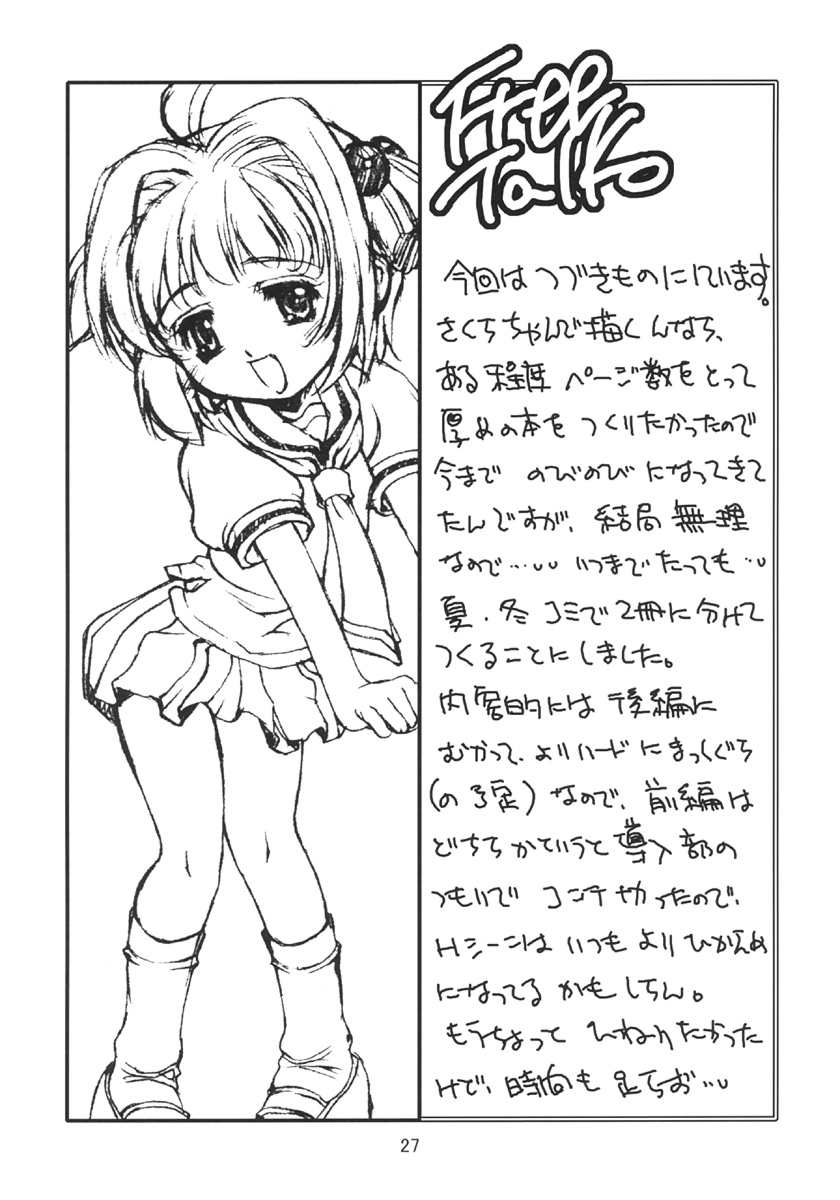 Free
Talk
今回は つづきものにしています。
さくらちゃんで描くんなら、
ある程度 ページ数をとって
厚めの本を つくりたかったので
今まで のびのびになってきて
たんですが、結局無理
なので… いつまでたっても…
夏・冬コミで2冊に分けて
つくることにしました。
内容的には後編に
むかって、よりハードにまっしぐら
(の予定)なので、前編は
どちらかていうと導入部の
つもりで コンテやったので、
Hシーンは いつもよりひかえめ
になってるかもしらん。
もうちょっと ひねりたかった
けど、時間も足らず…
27